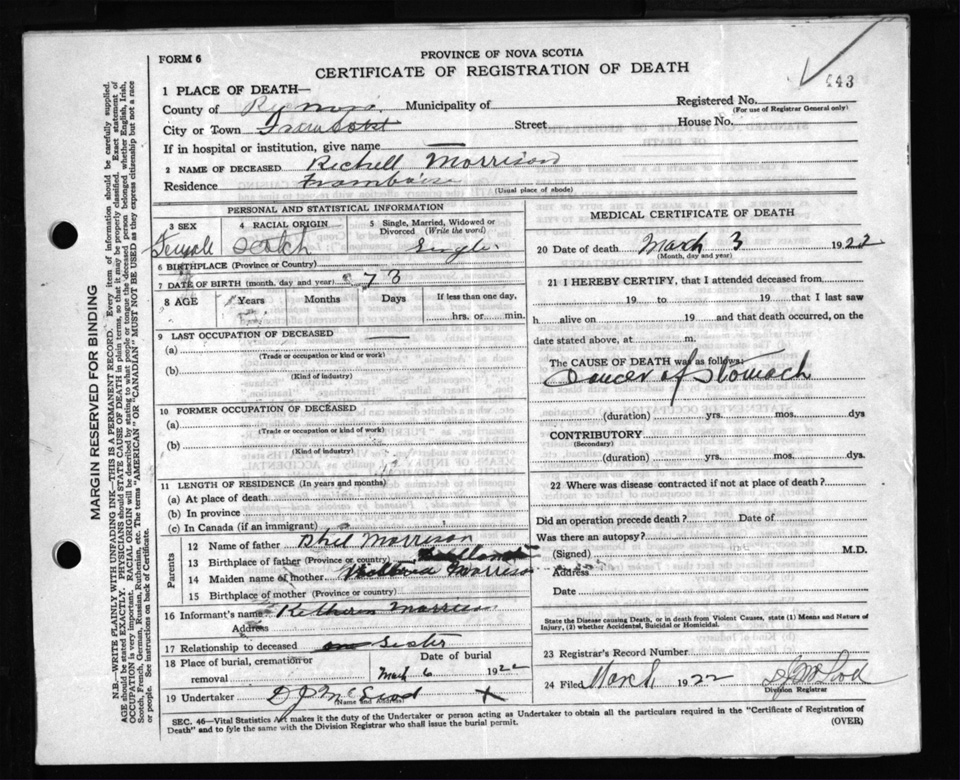 FORM 6
PROVINCE OF NOVA SCOTIA
CERTIFICATE OF REGISTRATION OF DEATH
443
1 PLACE OF DEATH—
County of Municipality of Registered No.
(For use of Registrar General only)
City or Town Street House No.
If in hospital or institution, give name —
2 NAME OF DECEASED Richell Morrison
Residence Framboise
(Usual place of abode)
PERSONAL AND STATISTICAL INFORMATION
3 SEX 4 RACIAL ORIGIN 5 Single, Married, Widowed or Divorced (Write the word)
Female Scotch Single
6 BIRTHPLACE (Province or Country)
7 DATE OF BIRTH (month, day and year) 73
8 AGE Years Months Days If less than one day,
hrs. or min.
9 LAST OCCUPATION OF DECEASED —
(a)
(Trade or occupation or kind or work)
(b)
(Kind of industry)
10 FORMER OCCUPATION OF DECEASED
(a)
(Trade or occupation or kind of work)
(b)
(Kind of industry)
11 LENGTH OF RESIDENCE (In years and months)
(a) At place of death
(b) In province
(c) In Canada (if an immigrant)
Parents
12 Name of father Morrison
13 Birthplace of father (Province or country)
14 Maiden name of mother Morrison
15 Birthplace of mother (Province or country)
16 Informant's name Morrison
Address
17 Relationship to deceased Sister
18 Place of burial, cremation or removal Date of burial
March 6 1922
19 Undertaker D J McLeod X
(Name and Address)
MEDICAL CERTIFICATE OF DEATH
20 Date of death March 3 1922
(Month, day and year)
21 I HEREBY CERTIFY, that I attended deceased from
19 to 19 that I last saw
h alive on 19 and that death occurred, on the
date stated above, at m.
The CAUSE OF DEATH was as follows:
Cancer of Stomach
(duration) yrs. mos. dys
CONTRIBUTORY
(Secondary)
(duration) yrs. mos. dys.
22 Where was disease contracted if not at place of death?
Did an operation precede death? Date of
Was there an autopsy?
(Signed) M.D.
Address
Date
State the Disease causing Death, or in death from Violent Causes, state (1) Means and Nature of
Injury, (2) whether Accidental, Suicidal or Homicidal.
23 Registrar's Record Number
24 Filed March 1922 D J McLeod
Division Registrar
SEC. 46—Vital Statistics Act makes it the duty of the Undertaker or person acting as Undertaker to obtain all the particulars required in the "Certificate of Registration of
Death" and to fyle the same with the Division Registrar who shall issue the burial permit. (OVER)
MARGIN RESERVED FOR BINDING
N.B.—WRITE PLAINLY WITH UNFADING INK—THIS IS A PERMANENT RECORD. Every item of information should be carefully supplied.
AGE should be stated EXACTLY. PHYSICIANS should STATE CAUSE OF DEATH in plain terms, so that it may be properly classified. Exact statement of
OCCUPATION is very important. RACIAL ORIGIN will be described by stating to what people or tongue the deceased person belonged whether English, Irish,
Scotch, French, German, Russian, Ruthenian, etc. The terms "AMERICAN" or "CANADIAN" MUST NOT BE USED as they express citizenship but not a race
or people. See instructions on back of Certificate.